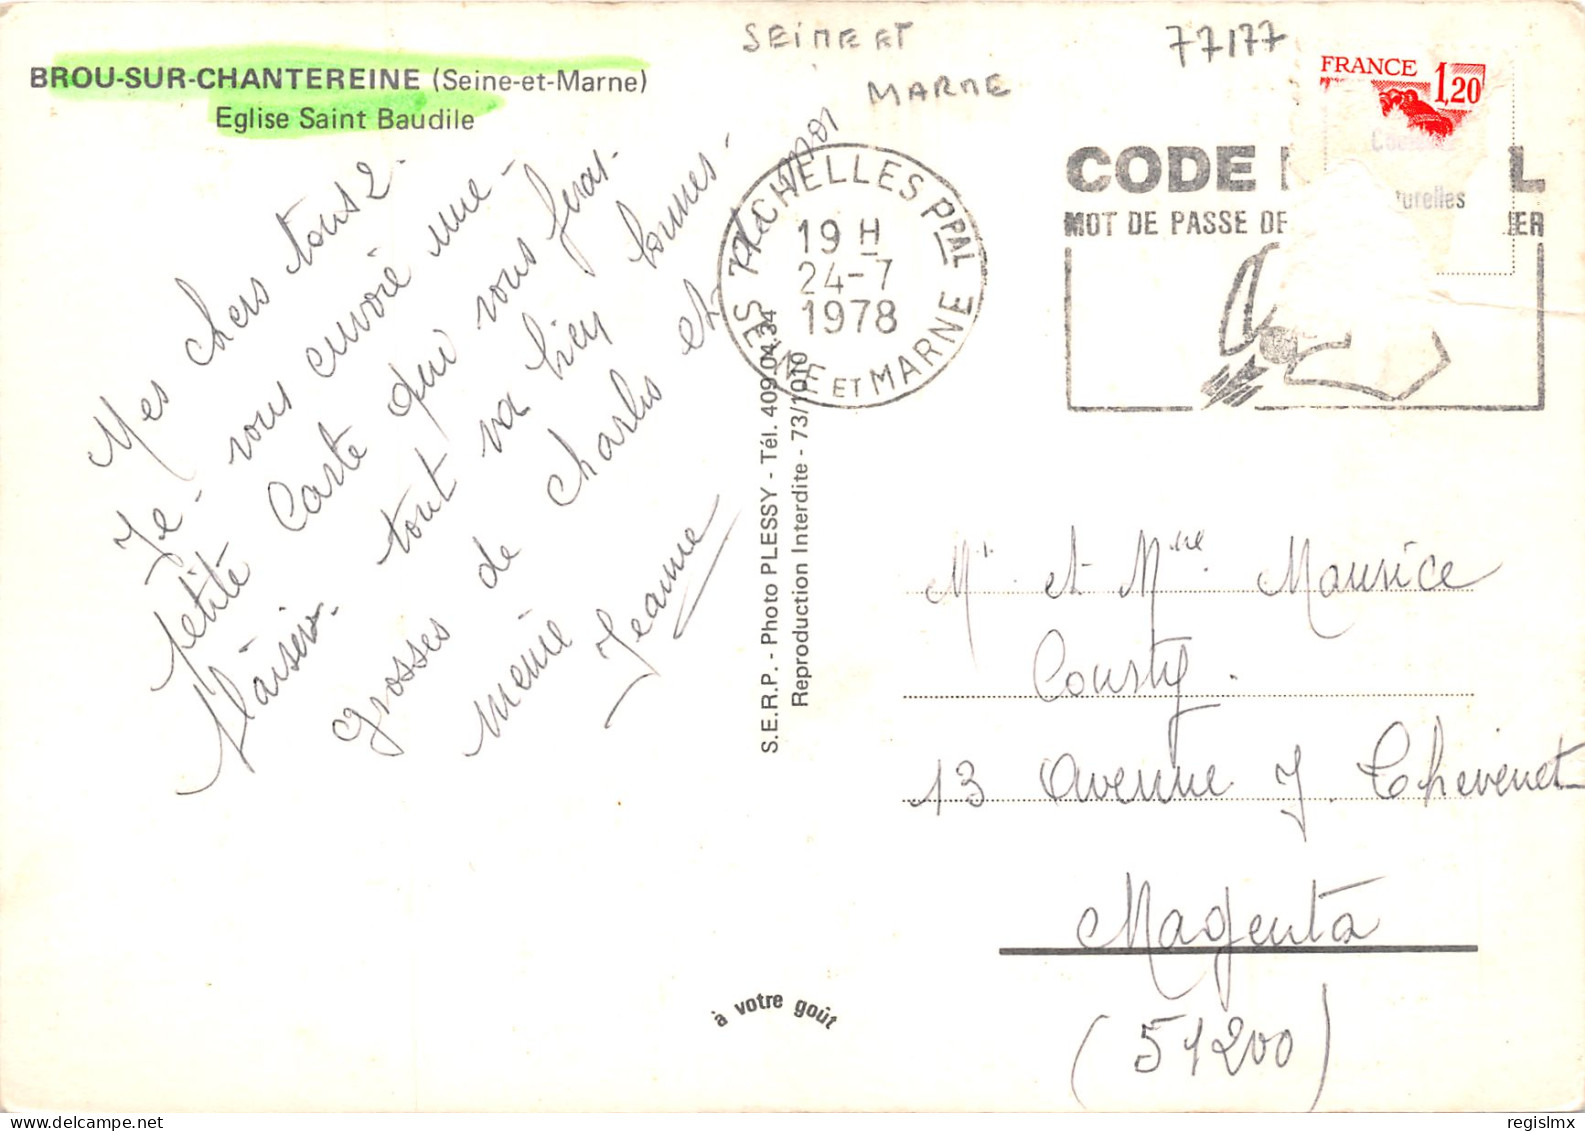 BROU-SUR-CHANTEREINE (Seine-et-Marne)
Eglise Saint Baudile
SEINE ET
MARNE
77177
FRANCE 1,20
turelles
CODE
MOT DE PASSE DE
IER
77 CHELLES PPAL
19 H
24-7
1978
SEINE ET MARNE
Mes chers tous 2.
Je vous envoie une
petite Carte qui vous feras
plaisir. tout va bien bonnes
grosses de Charles et moi
meme
Jeanne
S.E.R.P. - Photo PLESSY - Tél. 409.04.34
Reproduction Interdite - 73/1010
Mr. et Mme Maurice
Cousty.
13 Avenue J. Thevenet
Magenta
(51200)
à votre goût
regislmx